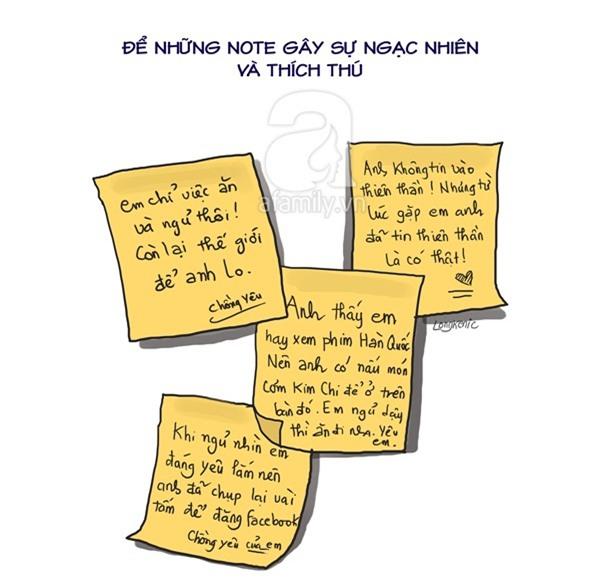 ĐỂ NHỮNG NOTE GÂY SỰ NGẠC NHIÊN
VÀ THÍCH THÚ
a
afamily.vn
em chỉ việc ăn
và ngủ thôi!
Còn lại thế giới
để anh lo.
Chồng yêu
Anh không tin vào
thiên thần! Nhưng từ
lúc gặp em anh
đã tin thiên thần
là có thật!
Longkonic
Anh thấy em
hay xem phim Hàn Quốc
Nên anh có nấu món
Cơm Kim Chi để ở trên
bàn đó. Em ngủ dậy
thì ăn đi nha. Yêu
em.
Khi ngủ nhìn em
đáng yêu lắm nên
anh đã chụp lại vài
tấm để đăng facebook
Chồng yêu của em